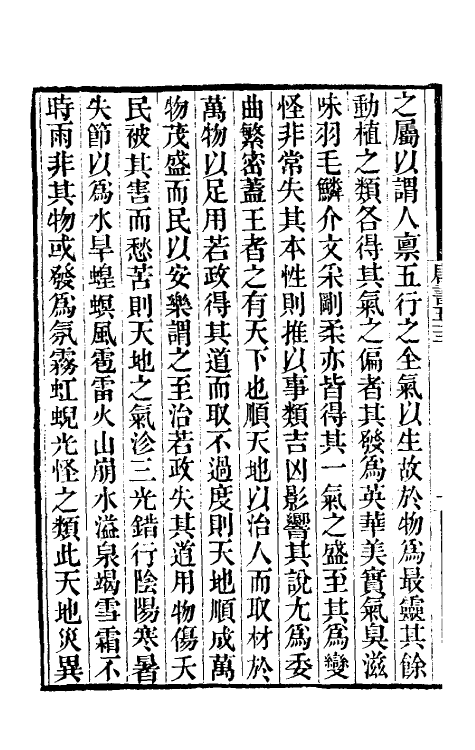 之屬以謂人禀五行之全氣以生故於物爲最靈其餘
動植之類各得其氣之偏者其發爲英華美實氣臭滋
味羽毛鱗介文采剛柔亦皆得其一氣之盛至其爲變
怪非常失其本性則推以事類吉凶影響其說尤爲委
曲繁密蓋王者之有天下也順天地以治人而取材於
萬物以足用若政得其道而取不過度則天地順成萬
物茂盛而民以安樂謂之至治若政失其道用物傷天
民被其害而愁苦則天地之氣沴三光錯行陰陽寒暑
失節以爲水旱蝗螟風雹雷火山崩水溢泉竭雪霜不
時雨非其物或發爲氛霧虹蜺光怪之類此天地災異